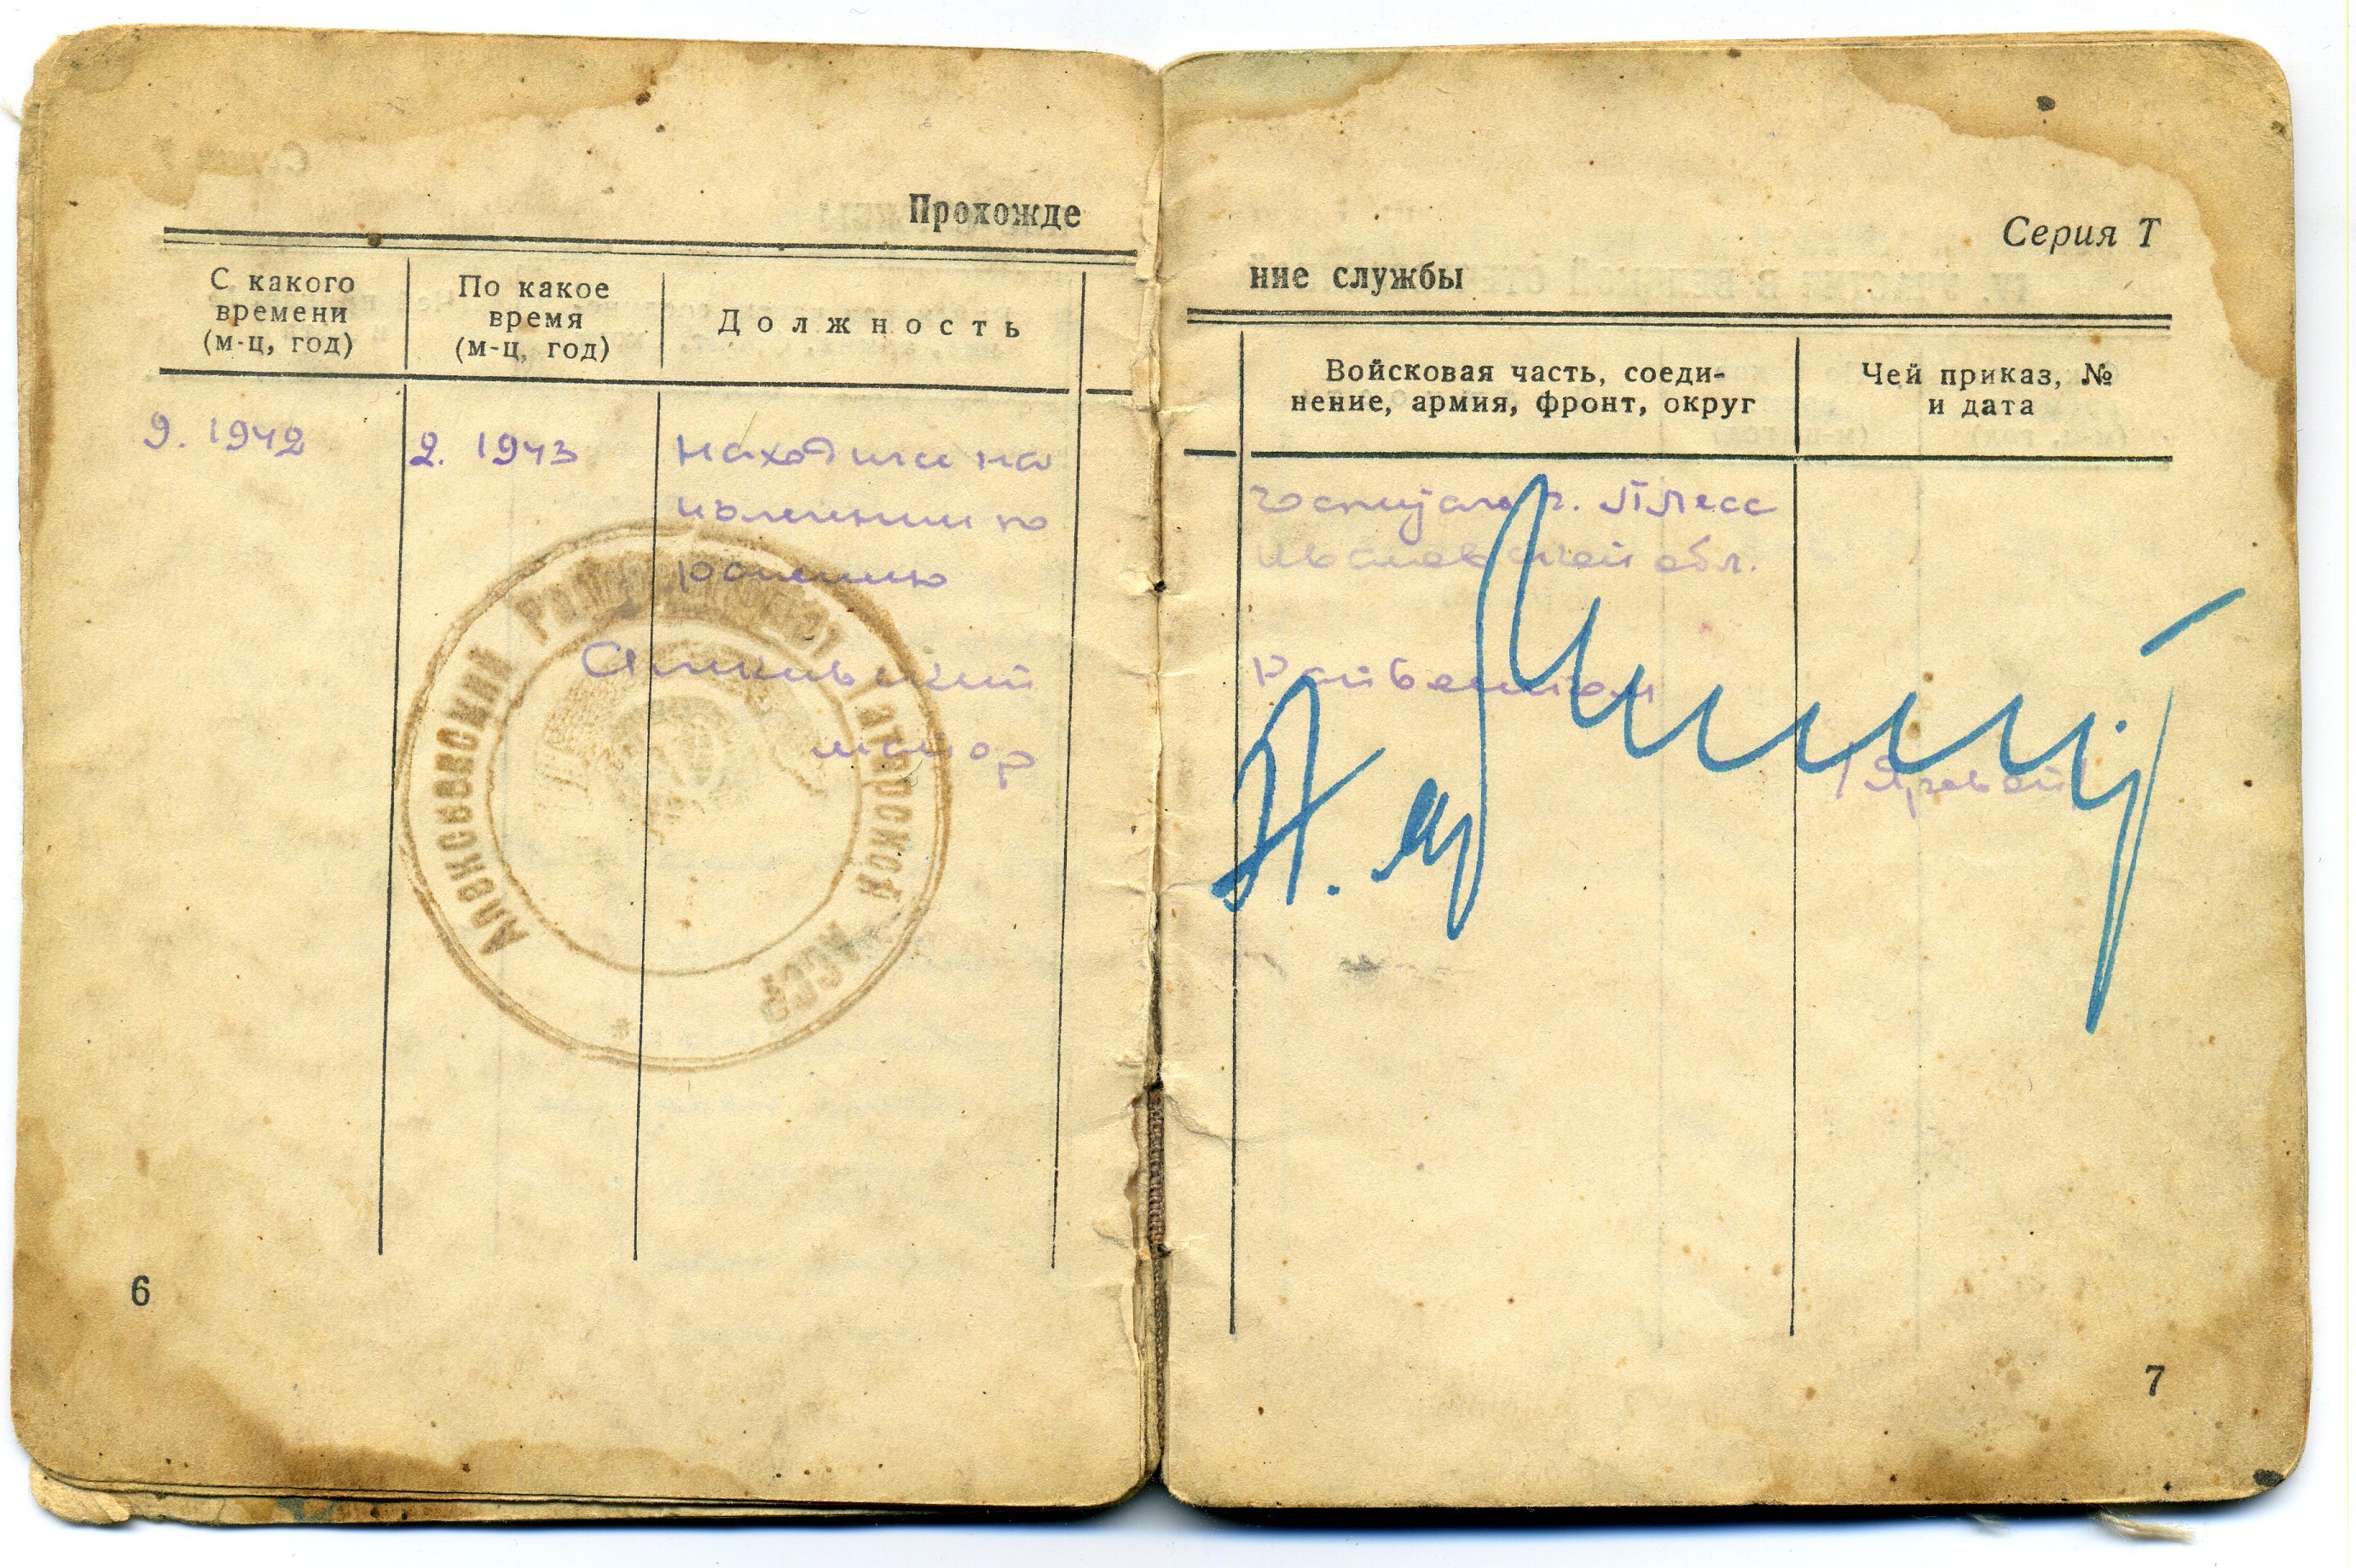 Прохожде
С какого
времени
(м-ц, год)
По какое
время
(м-ц, год)
Должность
9. 1942
2. 1943
находился на
излечении по
ранению
Алькеевский
майор
Татарской АССР
6
Серия Т
ние службы
Войсковая часть, соеди-
нение, армия, фронт, округ
Чей приказ, №
и дата
госпиталь г. Плесс
Ивановской обл.
Райвоенком
7